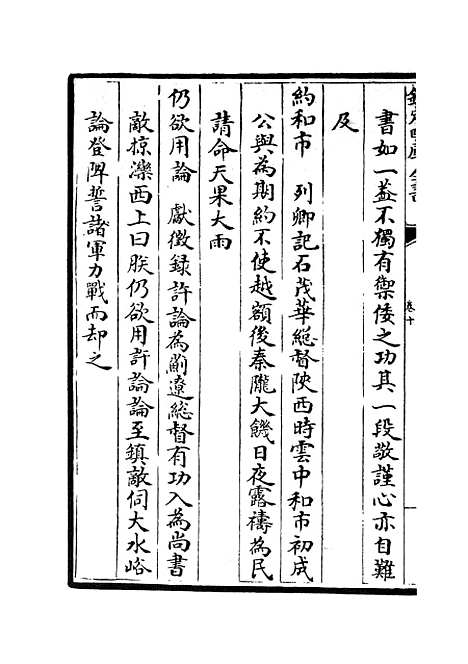 欽定四庫全書
卷十
書如一葢不獨有禦倭之功其一段敬謹心亦自難
及
約和市 列卿記石茂華總督陜西時雲中和市初成
公與為期約不使越額後秦隴大饑日夜露禱為民
請命天果大雨
仍欲用論 獻徵録許論為薊遼總督有功入為尚書
敵掠灤西上曰朕仍欲用許論論至鎮敵伺大水峪
論登陴誓諸軍力戰而却之